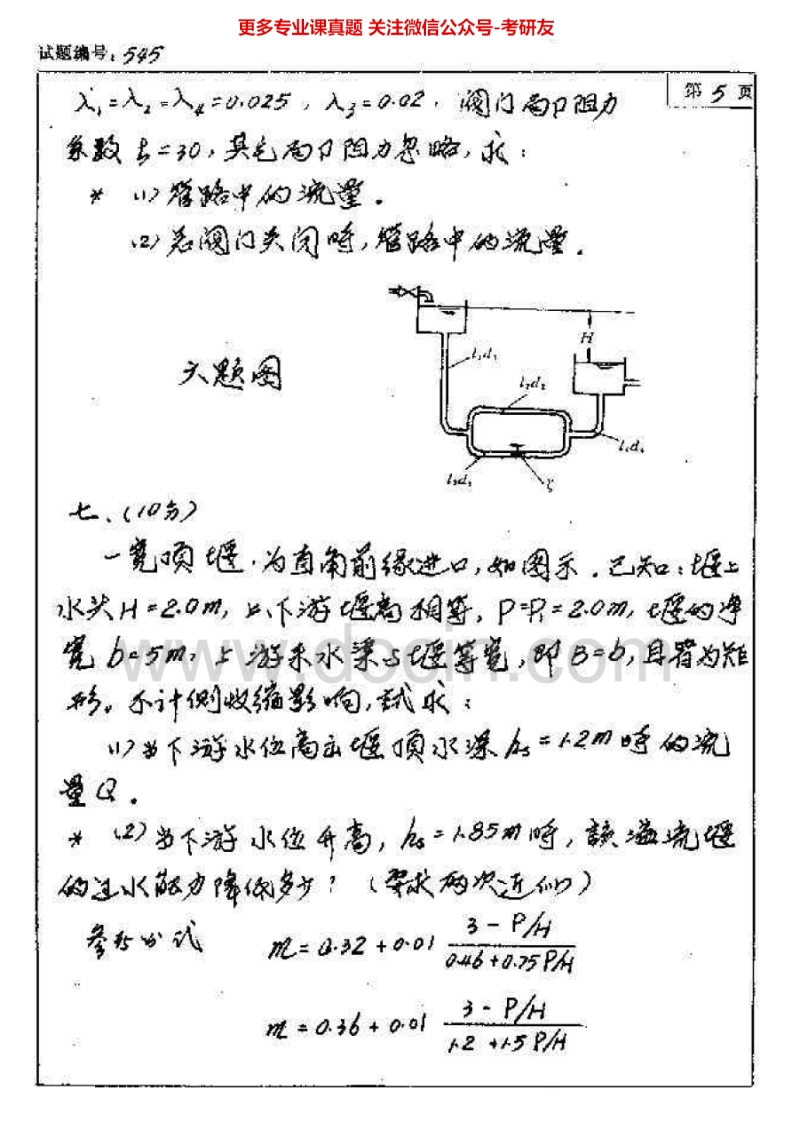 更多专业课真题 关注微信公众号-考研友
试题编号：545
第 5 页
λ₁=λ₂=λ₄=0.025，λ₃=0.02，阀门局部阻力
系数 ξ=30，其它局部阻力忽略，求：
* (1) 管路中的流量。
(2) 若阀门关闭时，管路中的流量。
H
l₁d₁
l₂d₂
六题图
l₄d₄
l₃d₃
ζ
七、(10分)
一宽顶堰，为直角前缘进口，如图示。已知：堰上
水头 H=2.0m，上、下游堰高相等，P=P₁=2.0m，堰的净
宽 b=5m，上游来水渠与堰等宽，即 B=b，且皆为矩
形。不计侧收缩影响，试求：
(1) 当下游水位高出堰顶水深 hs=1.2m 时的流
量 Q。
* (2) 当下游水位升高，hs=1.85m 时，该溢流堰
的过水能力降低多少？（要求两次近似）
参考公式 m=0.32+0.01 (3-P/H)/(0.46+0.75P/H)
m=0.36+0.01 (3-P/H)/(1.2+1.5P/H)
www.docin.com